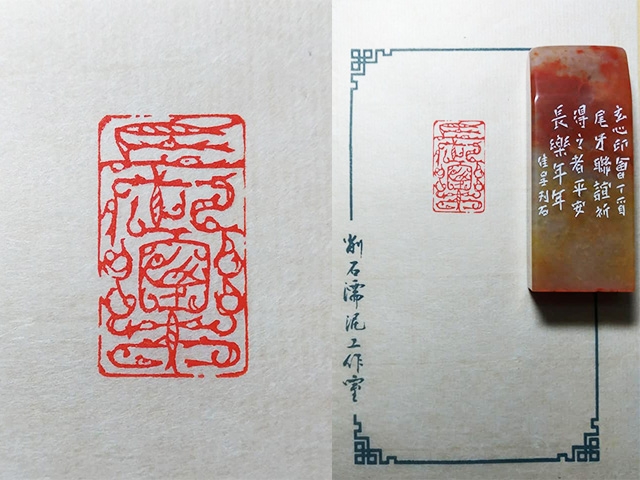 玄心印會丁酉
尾牙聯誼祈
得之者平安
長樂年年
佳星刊石
削石濡泥工作室